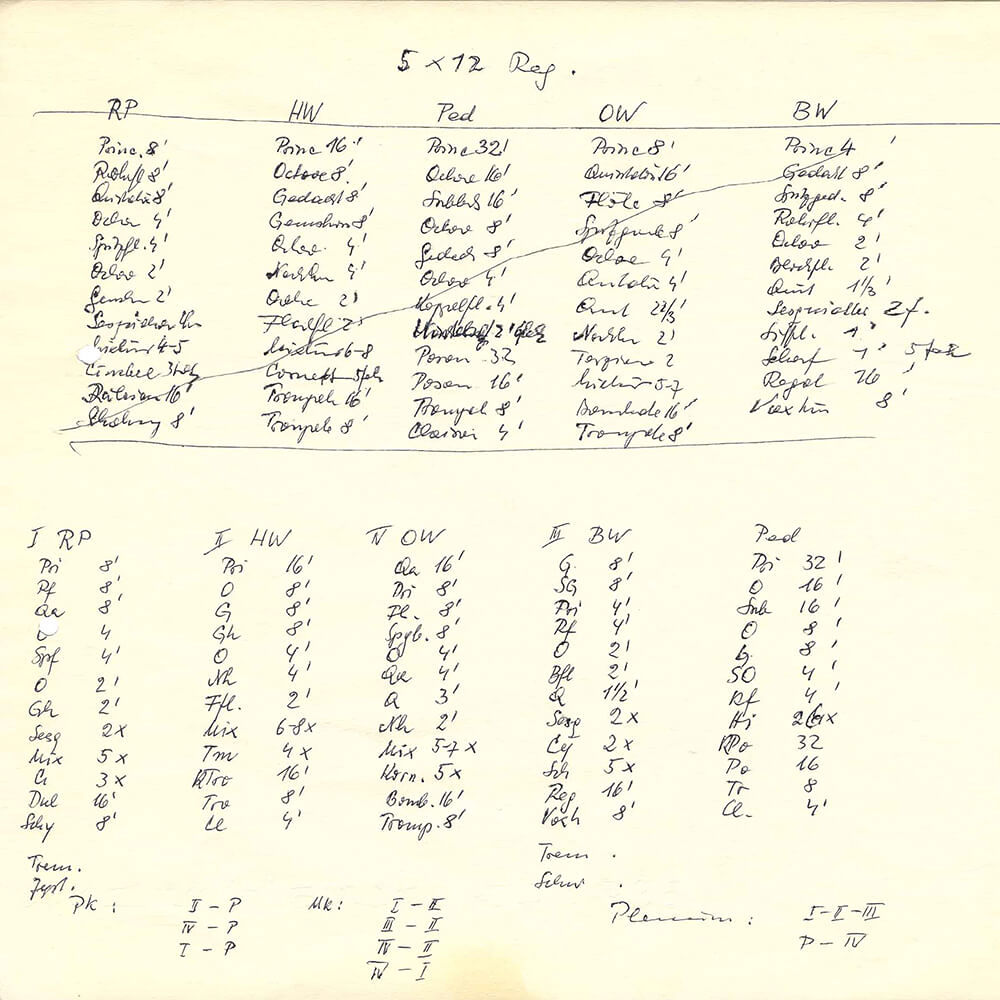 5 x 12 Reg.
RP HW Ped OW BW
Princ. 8' Princ 16' Princ 32' Princ 8' Princ 4'
Rohrfl 8' Octave 8' Octave 16' Quintatön 16' Gedackt 8'
Quintatön 8' Gedackt 8' Subbass 16' Flöte 8' Spitzged. 8'
Octav 4' Gemshorn 8' Octave 8' 8' Rohrfl. 4'
Spitzfl. 4' Octave 4' Gedack 8' Octave 4' Octave 2'
Octave 2' Nachthn 4' Octave 4' Quintatön 4' Blockfl. 2'
Gemshn 2' Octave 2' Koppelfl. 4' Quint 2 2/3' Quint 1 1/3'
Flachfl 2' Nachthn 2' Sesquialtera 2 f.
Mixtur 4-5 Mixtur 6-8 Posaun 32 Siffl. 1'
Cimbel 3fach Cornett 5fach Posaun 16' Mixtur 5-7 Scharf 1' 5fach
16' Trompete 16' Trompete 8' Bombarde 16' Regal 16'
8' Trompete 8' Clairon 4' Trompete 8' Vox hum 8'
I RP II HW IV OW III BW Ped
Pri 8' Pri 16' Qa 16' G 8' Pri 32'
Rf 8' O 8' Pri 8' SG 8' O 16'
Qa 8' G 8' Fl. 8' Pri 4' Sub 16'
4 Gh 8' Spgb. 8' Rf 4' O 8'
Spf 4' O 4' O 4' O 2' G. 8'
O 2' Nh 4' Qa 4' Bfl 2' SO 4'
Gh 2' Ffl. 2' Q 3' Q 1 1/2' Rf 4'
Sesq 2x Mix 6-8x Nh 2' Sesq 2x
Mix 5x Tm 4x Mix 5-7x Cy 2x Po 32
C 3x Tro 16' Korn. 5x Sch 5x Po 16
Dul 16' Tro 8' Bomb. 16' Reg 16' Tr 8
Schy 8' Cl 4' Tromp. 8' Voxh 8' Cl. 4'
Trem. Trem .
Zyst. Schw .
PK : II - P MK : I - II Plenum : I-II-III
IV - P III - II P - IV
I - P IV - II
IV - I